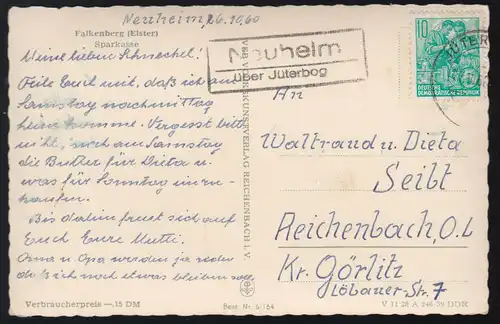 Neuheim, 26.10.60
Falkenberg (Elster)
Sparkasse
Meine lieben Schneckel!
Teile Euch mit, daß ich am
Samstag nachmittag
heim komme. Vergesst bitte
nicht, noch am Samstag
die Butter für Dieta u.
was für Sonntag
kaufen.
Bis dahin freut sich auf
Euch Eure Mutti.
Oma u. Opa werden ja reden
daß ich noch etwas bleiben soll
Verbraucherpreis —.15 DM
VERLAG KUNSTVERLAG REICHENBACH I. V.
Best. Nr. 6/164
Neuheim
über Jüterbog
10
DEUTSCHE
DEMOKRATISCHE REPUBLIK
JÜTER
An
Waltraud u. Dieta
Seibt
Reichenbach, O.L
Kr. Görlitz
Löbauer-Str. 7
V 11 28 A 246 59 DDR